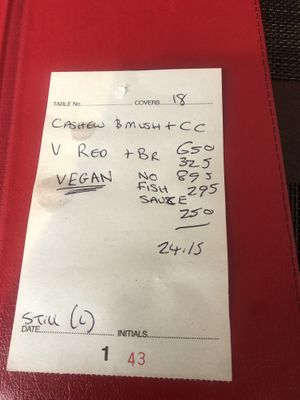 TABLE No. COVERS 18
CASHEW & MUSH + CC
V RED + BR 650
325
VEGAN NO 895
FISH 295
SAUCE
250
24.15
STILL (L)
DATE INITIALS
1 43